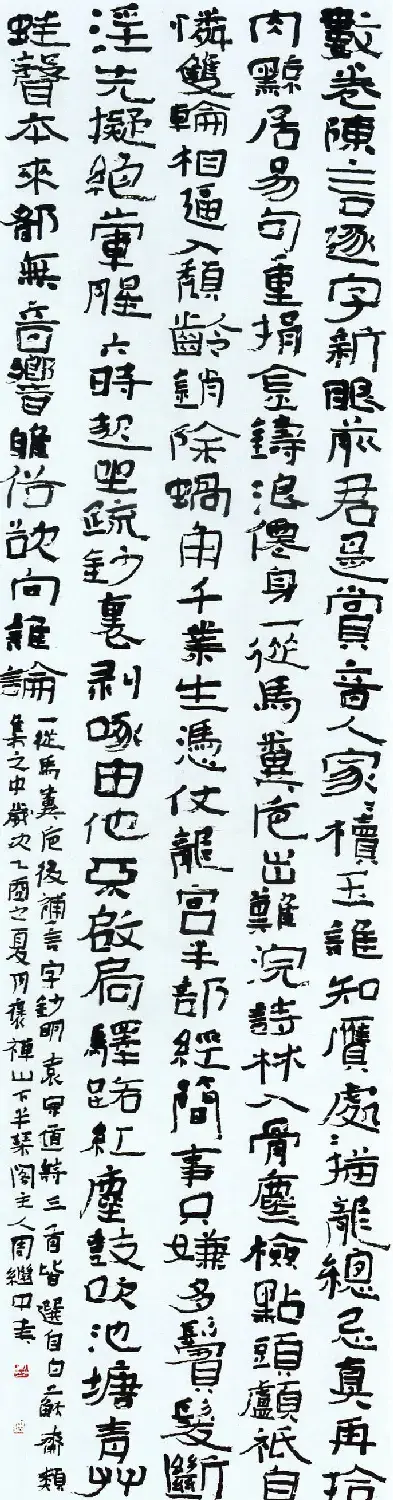 數卷陳言逐字新眼前君是賞音人家〻櫝玉誰知贋處〻描龍總忌真再拾
肉黥居易句重捐金鑄浪僊身一從馬糞巵出難浣詩林入骨塵檢點頭顱祇自
憐雙輪相逼入頹齡銷除蝸角千業生憑仗龍宮半部經簡事只嫌多鬢髮斷
淫先擬絕葷腥六時起坐疏鈔裏剝啄由他不啟扃驛路紅塵鼓吹池塘青艸
蛙聲本來都無音響雅俗欲向誰論
一從馬糞巵後補言字鈔明袁宗道詩三首皆選自白蘇齋類
集之中歲次乙酉之夏月禪山下半琴閣主人周繼中書